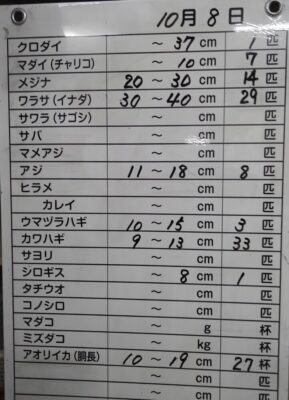 10月8日
クロダイ ～ 37 cm 1 匹
マダイ(チャリコ) ～ 10 cm 7 匹
メジナ 20 ～ 30 cm 14 匹
ワラサ(イナダ) 30 ～ 40 cm 29 匹
サワラ(サゴシ) ～ cm 匹
サバ ～ cm 匹
マメアジ ～ cm 匹
アジ 11 ～ 18 cm 8 匹
ヒラメ ～ cm 匹
カレイ ～ cm 匹
ウマヅラハギ 10 ～ 15 cm 3 匹
カワハギ 9 ～ 13 cm 33 匹
サヨリ ～ cm 匹
シロギス ～ 8 cm 1 匹
タチウオ ～ cm 匹
コノシロ ～ cm 匹
マダコ ～ g 杯
ミズダコ ～ kg 杯
アオリイカ(胴長) 10 ～ 19 cm 27 杯
～ cm 匹
～ cm 匹